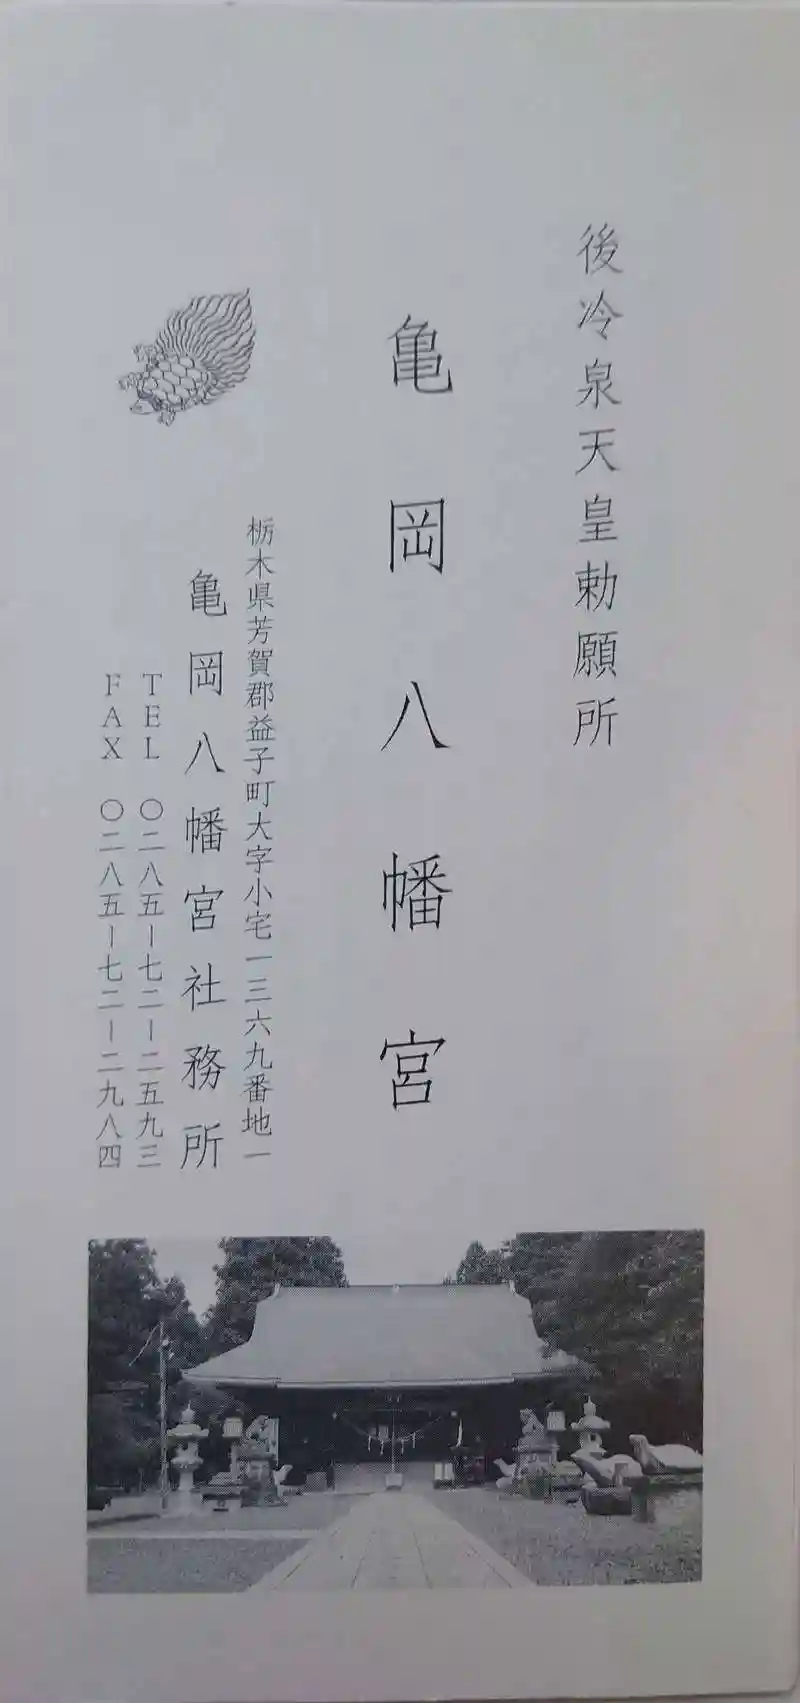 後冷泉天皇勅願所
亀岡八幡宮
栃木県芳賀郡益子町大字小宅一三六九番地一
亀岡八幡宮社務所
TEL 〇二八五ー七二ー二五九三
FAX 〇二八五ー七二ー二九八四